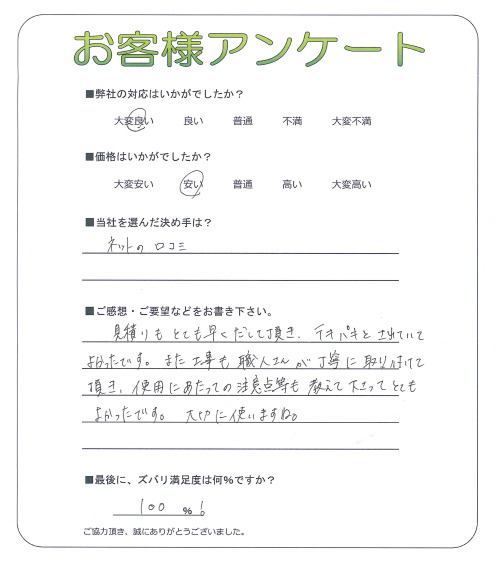 お客様アンケート
■弊社の対応はいかがでしたか？
大変良い 良い 普通 不満 大変不満
■価格はいかがでしたか？
大変安い 安い 普通 高い 大変高い
■当社を選んだ決め手は？
ネットの口コミ
■ご感想・ご要望などをお書き下さい。
見積りもとても早くだして頂き、テキパキとされていて
よかったです。また工事も職人さんが丁寧に取り付けて
頂き、使用にあたっての注意点等も教えて下さってとても
よかったです。大切に使いますね。
■最後に、ズバリ満足度は何％ですか？
100 ％！
ご協力頂き、誠にありがとうございました。